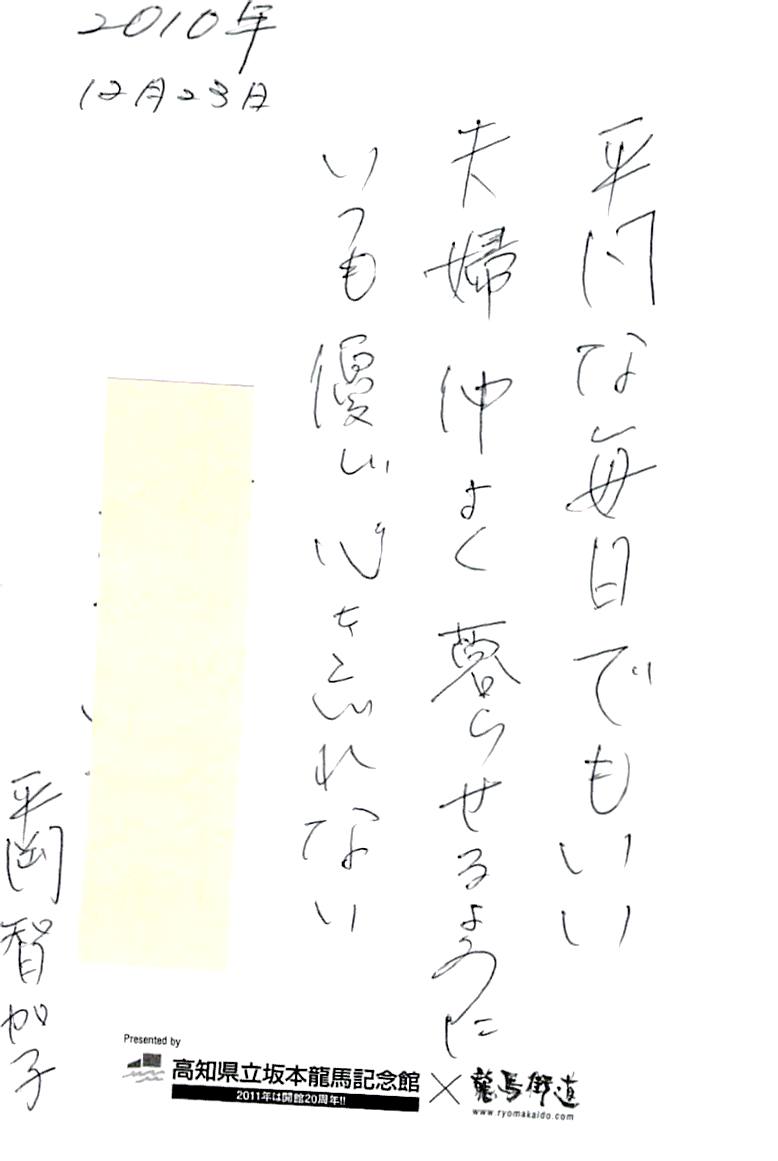 2010年
12月23日
平凡な毎日でもいい
夫婦仲よく暮らせるように
いつも優しい心を忘れない
平岡智加子
Presented by
高知県立坂本龍馬記念館×龍馬街道
2011年は開館20周年!!
www.ryomakaido.com